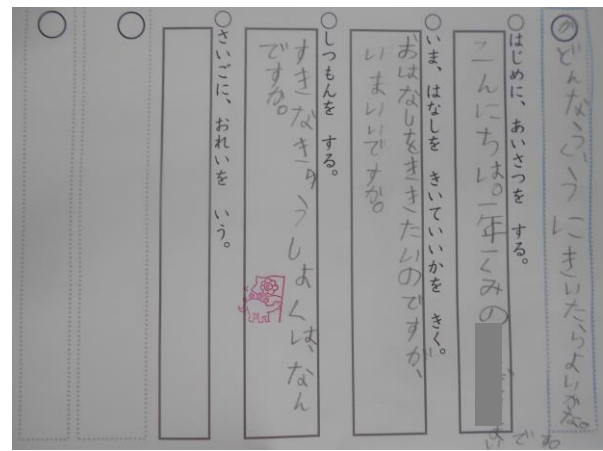 どんなふうにきいたらよいかな。
はじめに、あいさつを する。
こんにちは。一年一くみの
です。
いま、はなしを きいていいかを きく。
おはなしをききたいのですが、
いまいいですか。
しつもんを する。
すきなきゅうしょくは、なん
ですか。
さいごに、おれいを いう。